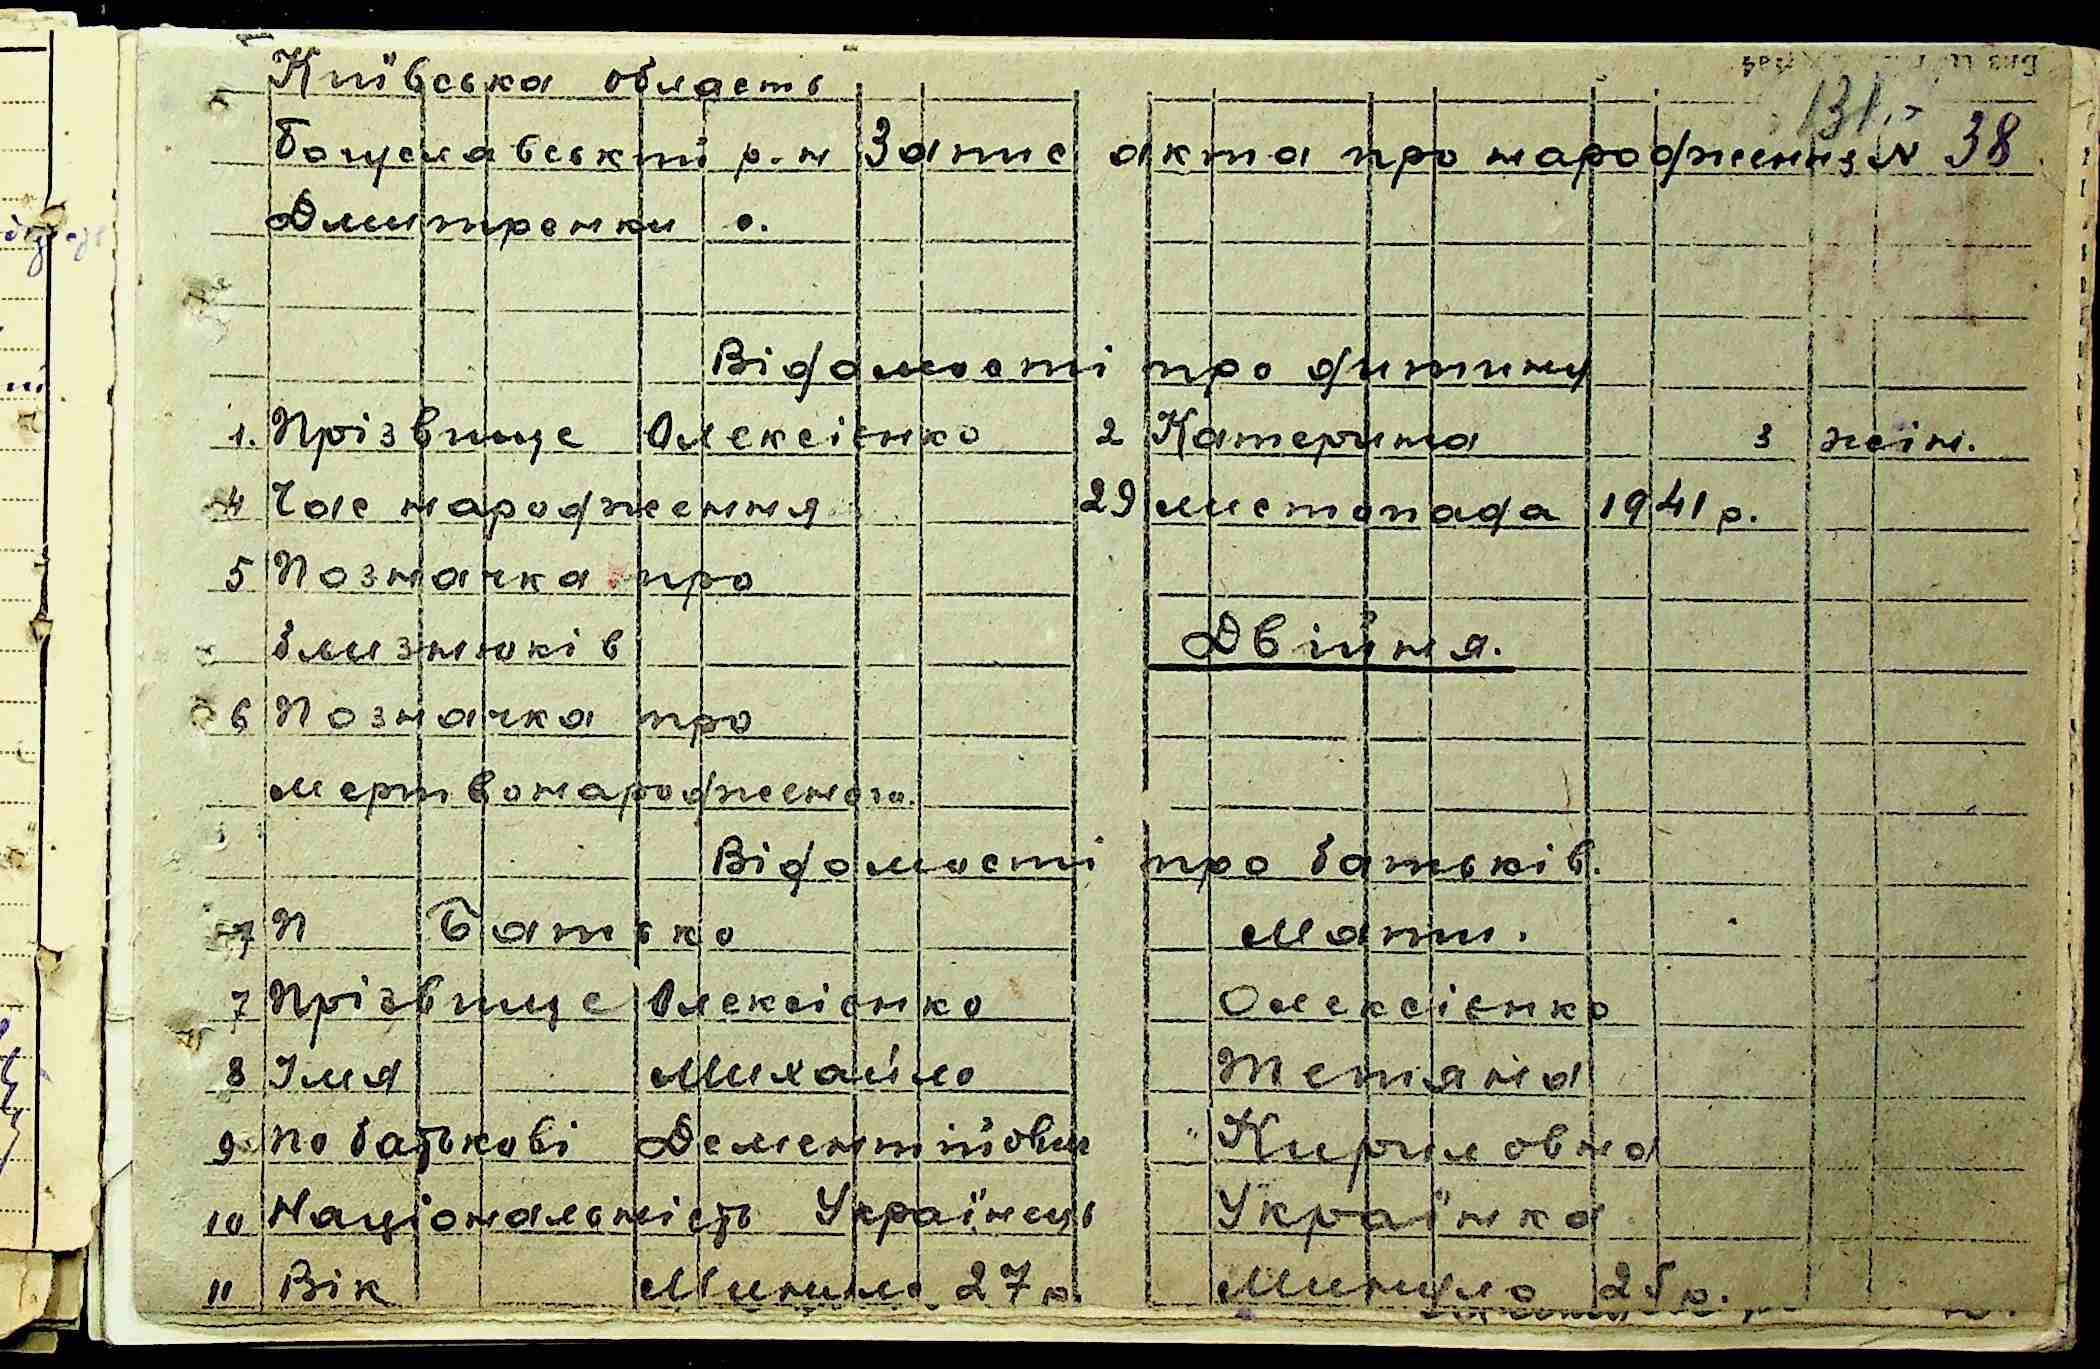 Київська область
131
Богуславський р-н Запис акта про народження N 38
Дмитренки с.
Відомості про дитину
1. Прізвище Олексієнко 2 Катерина 3 жін.
4 Час народження 29 листопада 1941 р.
5 Позначка про
близнюків Двійня.
6 Позначка про
мертвонародженого.
Відомості про батьків.
7 П Батько Мати.
7 Прізвище Олексієнко Олексієнко
8 Імя Михайло Тетяна
9 По батькові Дементійович Кириловна
10 Національність Українець Українка
11 Вік Минуло 27 р. Минуло 25 р.